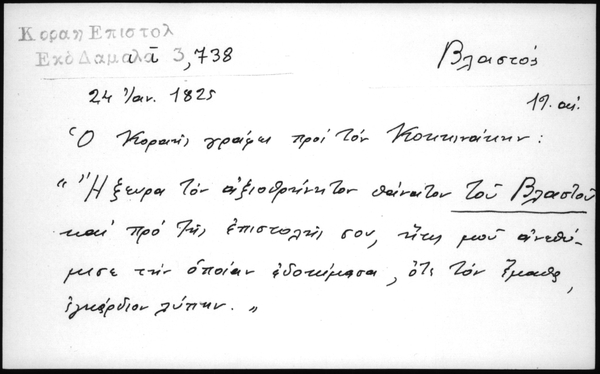 Κοραη Επιστολ
Βλαστός
Εκδ Δαμαλᾶ 3,738
24 Ἰαν. 1825
19. αἰ.
Ὁ Κοραῆς γράφει πρὸς τὸν Κοκκινάκην:
"Ἤξευρα τὸν ἀξιοθρήνητον θάνατον τοῦ Βλαστοῦ
καὶ πρὸ τῆς ἐπιστολῆς σου, ἥτις μοῦ ἀνεθύ-
μισε τὴν ὁποίαν ἐδοκίμασα, ὅτε τὸν ἔμαθα,
ἐγκάρδιον λύπην."